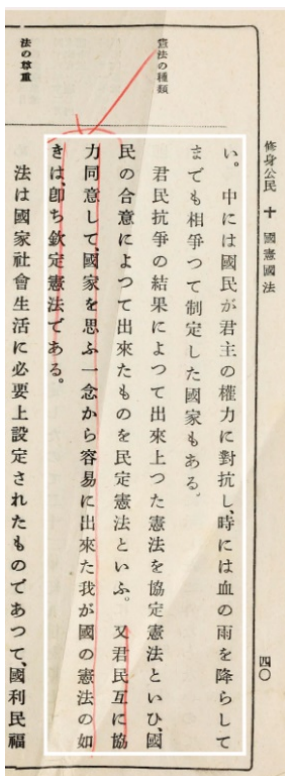 修身公民 十 國憲國法
四〇
憲法の種類
い。中には國民が君主の權力に對抗し、時には血の雨を降らして
までも相爭つて制定した國家もある。
君民抗爭の結果によつて出來上つた憲法を協定憲法といひ、國
民の合意によつて出來たものを民定憲法といふ。又君民互に協
力同意して、國家を思ふ一念から容易に出來た我が國の憲法の如
きは、卽ち欽定憲法である。
法の尊重
法は國家社會生活に必要上設定されたものであつて、國利民福